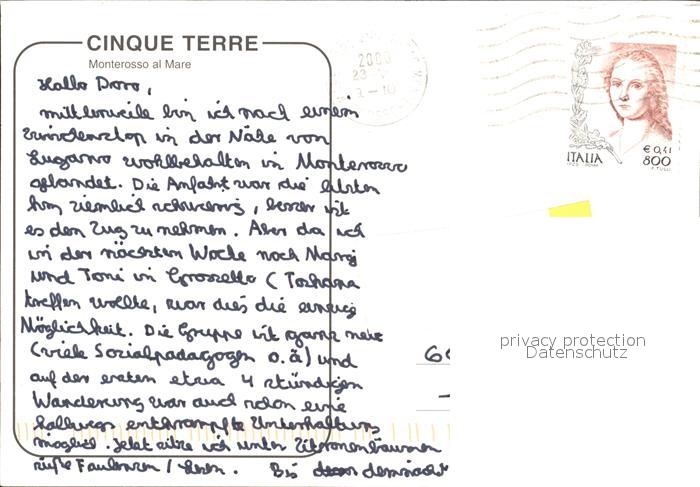 CINQUE TERRE
Monterosso al Mare
Hallo Doro,
mittlerweile bin ich nach einem
Zwischenstop in der Nähe von
Lugano wohlbehalten in Monterosso
gelandet. Die Anfahrt war die letzten
km ziemlich schwierig, besser ist
es den Zug zu nehmen. Aber da ich
in der nächsten Woche noch
und Toni in Grosseto (Toskana
treffen wollte, war dies die einzige
Möglichkeit. Die Gruppe ist ganz nett
(viele Sozialpädagogen o.ä) und
auf der ersten etwa 4 stündigen
Wanderung war auch schon eine
halbwegs entkrampfte Unterhaltung
möglich. Jetzt sitze ich unter Zitronenbäumen
süße Faulenzen / lesen. Bis demnächst
2000
23
ITALIA
€ 0,41
800
privacy protection
Datenschutz